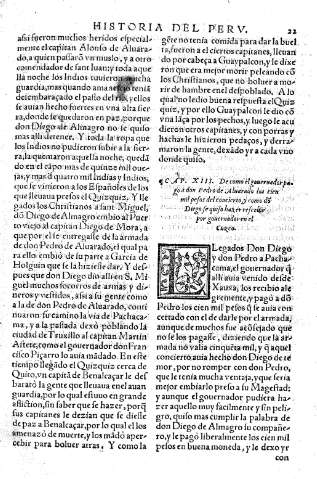 HISTORIA DEL PERV.
22
assi fueron muchos heridos especial-
mente el capitan Alonso de Aluara-
do, a quien passarõ vn muslo, y a otro
comendador de sant Iuan; y toda aque
lla noche los Indios tuuieron mucha
guardia, mas quando amanecio teniã
desembaraçado el passo del rio, y ellos
se auian hecho fuertes en vna alta sier
ra, donde se quedaron en paz, porque
don Diego de Almagro no se quiso
mas alli detener. Y toda la ropa que
los Indios no pudieron subir a la sier-
ra, la quemaron aquella noche, quedã
do en el cãpo mas de quinze mil oue-
jas, y mas d quatro mil Indias y Indios,
que se vinieron a los Españoles de los
que lleuaua presos el Quizquiz. Y lle
gados los Christianos a sant Miguel,
dõ Diego de Almagro embio al Puer
to viejo al capitan Diego de Mora, a
que por el se entregasse de la armada
de don Pedro de Aluarado, el qual pa
ra ello embio de su parte a Garcia de
Holguin que se la hiziesse dar. Y des-
pues que don Diego dio alli en S. Mi
guel muchos socorros de armas y di-
neros y vestidos, assi a su gente como
a la de don Pedro de Aluarado, conti
nuaron su camino la via de Pachaca-
ma, y a la passada dexò poblando la
ciudad de Truxillo al capitan Martin
Astete, como el gouernador don Fran
cisco Piçarro lo auia mãdado. En este
tiempo llegãdo el Quizquiz cerca de
Quito, vn capitã de Benalcaçar le des
baratò la gente que lleuaua en el auan
guardia, por lo qual estuuo en grande
aflicion, sin saber que se hazer, porq̃
sus capitanes le dezian que se diesse
de paz a Benalcaçar, por lo qual el los
amenazò de muerte, y los mãdò aper-
cebir para boluer atras. Y como la
gẽte no tenia comida para dar la buel
ta, fueron a el ciertos capitanes, lleuan
do por cabeça a Guaypalcon, y le dixe
ron que era mejor morir peleando cõ
los Christianos, que no boluer a mo-
rir de hambre en el despoblado. A lo
qual no le dio buena respuesta el Quiz
quiz, y por ello Guaypalcon le dio cõ
vna lãça por los pechos, y luego le acu
dieron otros capitanes, y con porras y
hachas le hizieron pedaços, y derra-
maron la gente, dexãdo yr a cada vno
donde quiso.
CAP. XIII. De como el gouernador pa-
gò a don Pedro de Aluarado los cien
mil pesos del concierto, y como dõ
Diego se quiso hazer rescebir
por gouernador en el
Cuzco.
LLegados Don Diego
y don Pedro a Pacha-
cama, el gouernador q̃
alli auia venido desde
Xauxa, los recibio ale
gremente, y pagò a dõ
Pedro los cien mil pesos q̃ se auia con
certado con el de darle por el armada;
aunque de muchos fue acõsejado que
no se los pagasse, diziendo que la ar-
mada nò valia cinquẽta mil, y q̃ aquel
concierto auia hecho don Diego de te
mor, por no romper con don Pedro,
que le tenia mucha ventaja, y que seria
mejor embiarlo preso a su Magestad;
y aunque el gouernador pudiera haz-
er aquello muy facilmente y sin peli-
gro, quiso mas cumplir la palabra de
don Diego de Almagro su compañe-
ro, y le pagò liberalmente los cien mil
pesos en buena moneda, y le dexò yr
con